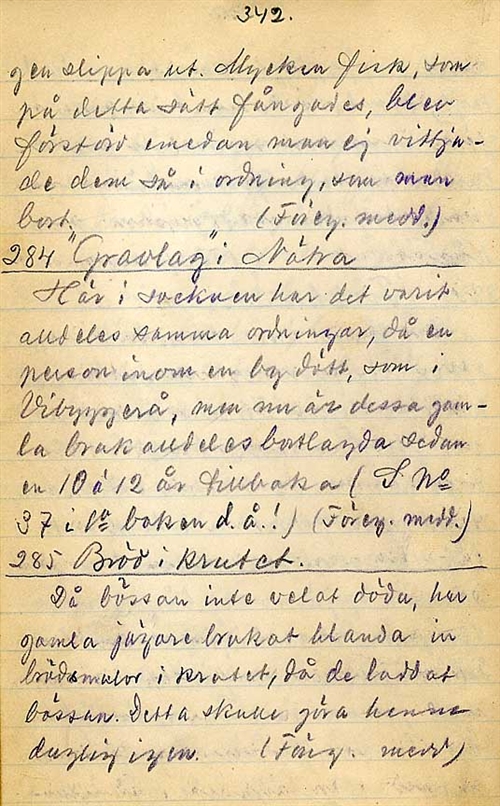 342.
gen slippa ut. Mycken fisk, som
på detta sätt fångades, blev
förstörd emedan man ej vittja-
de dem så i ordning, som man
bort. (Föreg. medd.)
284 "Gravlag" i Nätra
Här i socknen har det varit
alldeles samma ordningar, då en
person inom en by dött, som i
Vibyggerå, men nu är dessa gam-
la bruk alldeles bortlagda sedan
en 10 à 12 år tillbaka (S. No
37 i 1a boken d. å.!) (Föreg. medd.)
285 Bröd i krutet.
Då bössan inte velat döda, har
gamla jägare brukat blanda in
brödsmulor i krutet, då de laddat
bössan. Detta skulle göra henne
duglig igen. (Föreg. medd)